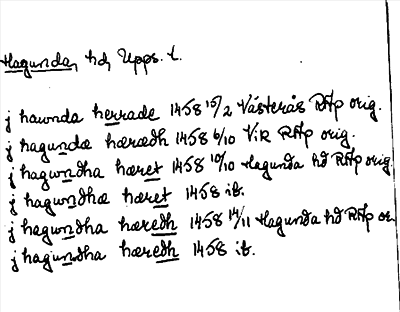 Hagunda, hd, Upps. l.
j hawnda herrade 1458 15/2 Västerås RAp orig.
j hagunda hærædh 1458 6/10 Vik RAp orig.
j hagwndha hæret 1458 10/10 Hagunda hd RAp orig
j hagwndhæ hæret 1458 ib.
j hagwndha hæredh 1458 14/11 Hagunda hd RAp or
j hagundha hæredh 1458 ib.